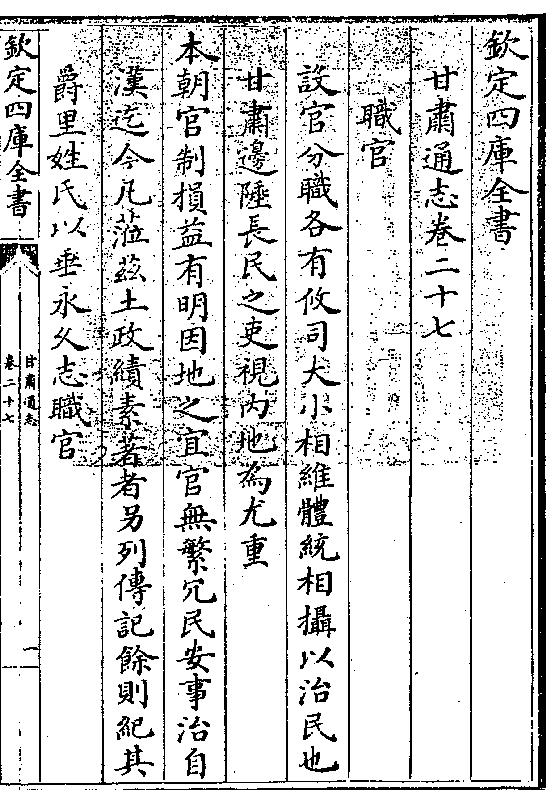 欽定四庫全書
甘肅通志卷二十七
職官
設官分職各有攸司大小相維體統相攝以治民也
甘肅邊陲長民之吏視內地為尤重
本朝官制損益有明因地之宜官無繁冗民安事治自
漢迄今凡蒞茲土政績素著者另列傳記餘則紀其
爵里姓氏以垂永久志職官
欽定四庫全書
甘肅通志
卷二十七
一